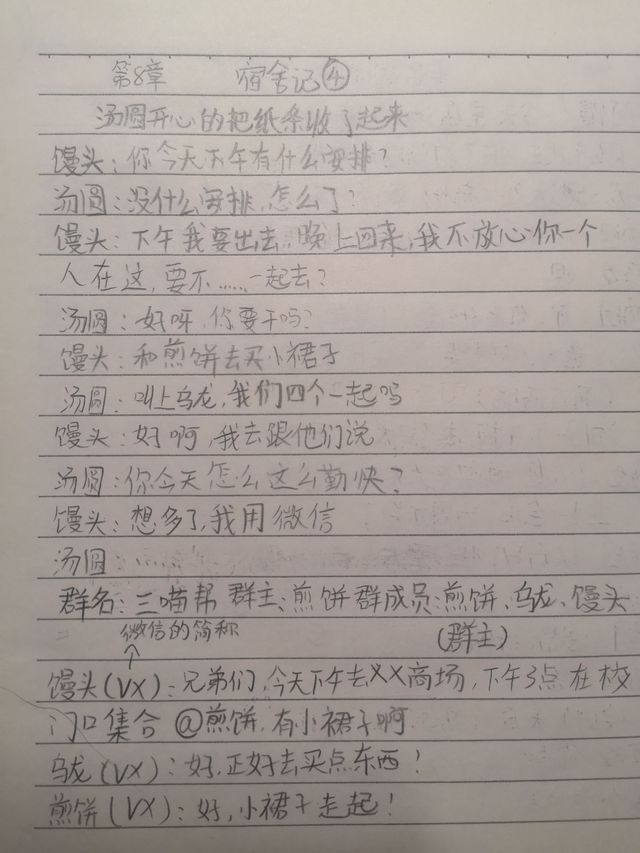 第8章 宿舍记④
汤圆开心的把纸条收了起来
馒头:你今天下午有什么安排?
汤圆:没什么安排,怎么了?
馒头:下午我要出去,晚上回来,我不放心你一个
人在这,要不……一起去?
汤圆:好呀,你要干吗?
馒头:和煎饼去买小裙子
汤圆:叫上乌龙,我们四个一起吗
馒头:好啊,我去跟他们说
汤圆:你今天怎么这么勤快?
馒头:想多了,我用微信
汤圆:……
群名:三喵帮 群主:煎饼 群成员:煎饼、乌龙、馒头
微信的简称 (群主)
馒头(VX):兄弟们,今天下午去XX商场,下午3点在校
门口集合 @煎饼,有小裙子啊
乌龙(VX):好,正好去买点东西!
煎饼(VX):好,小裙子走起!